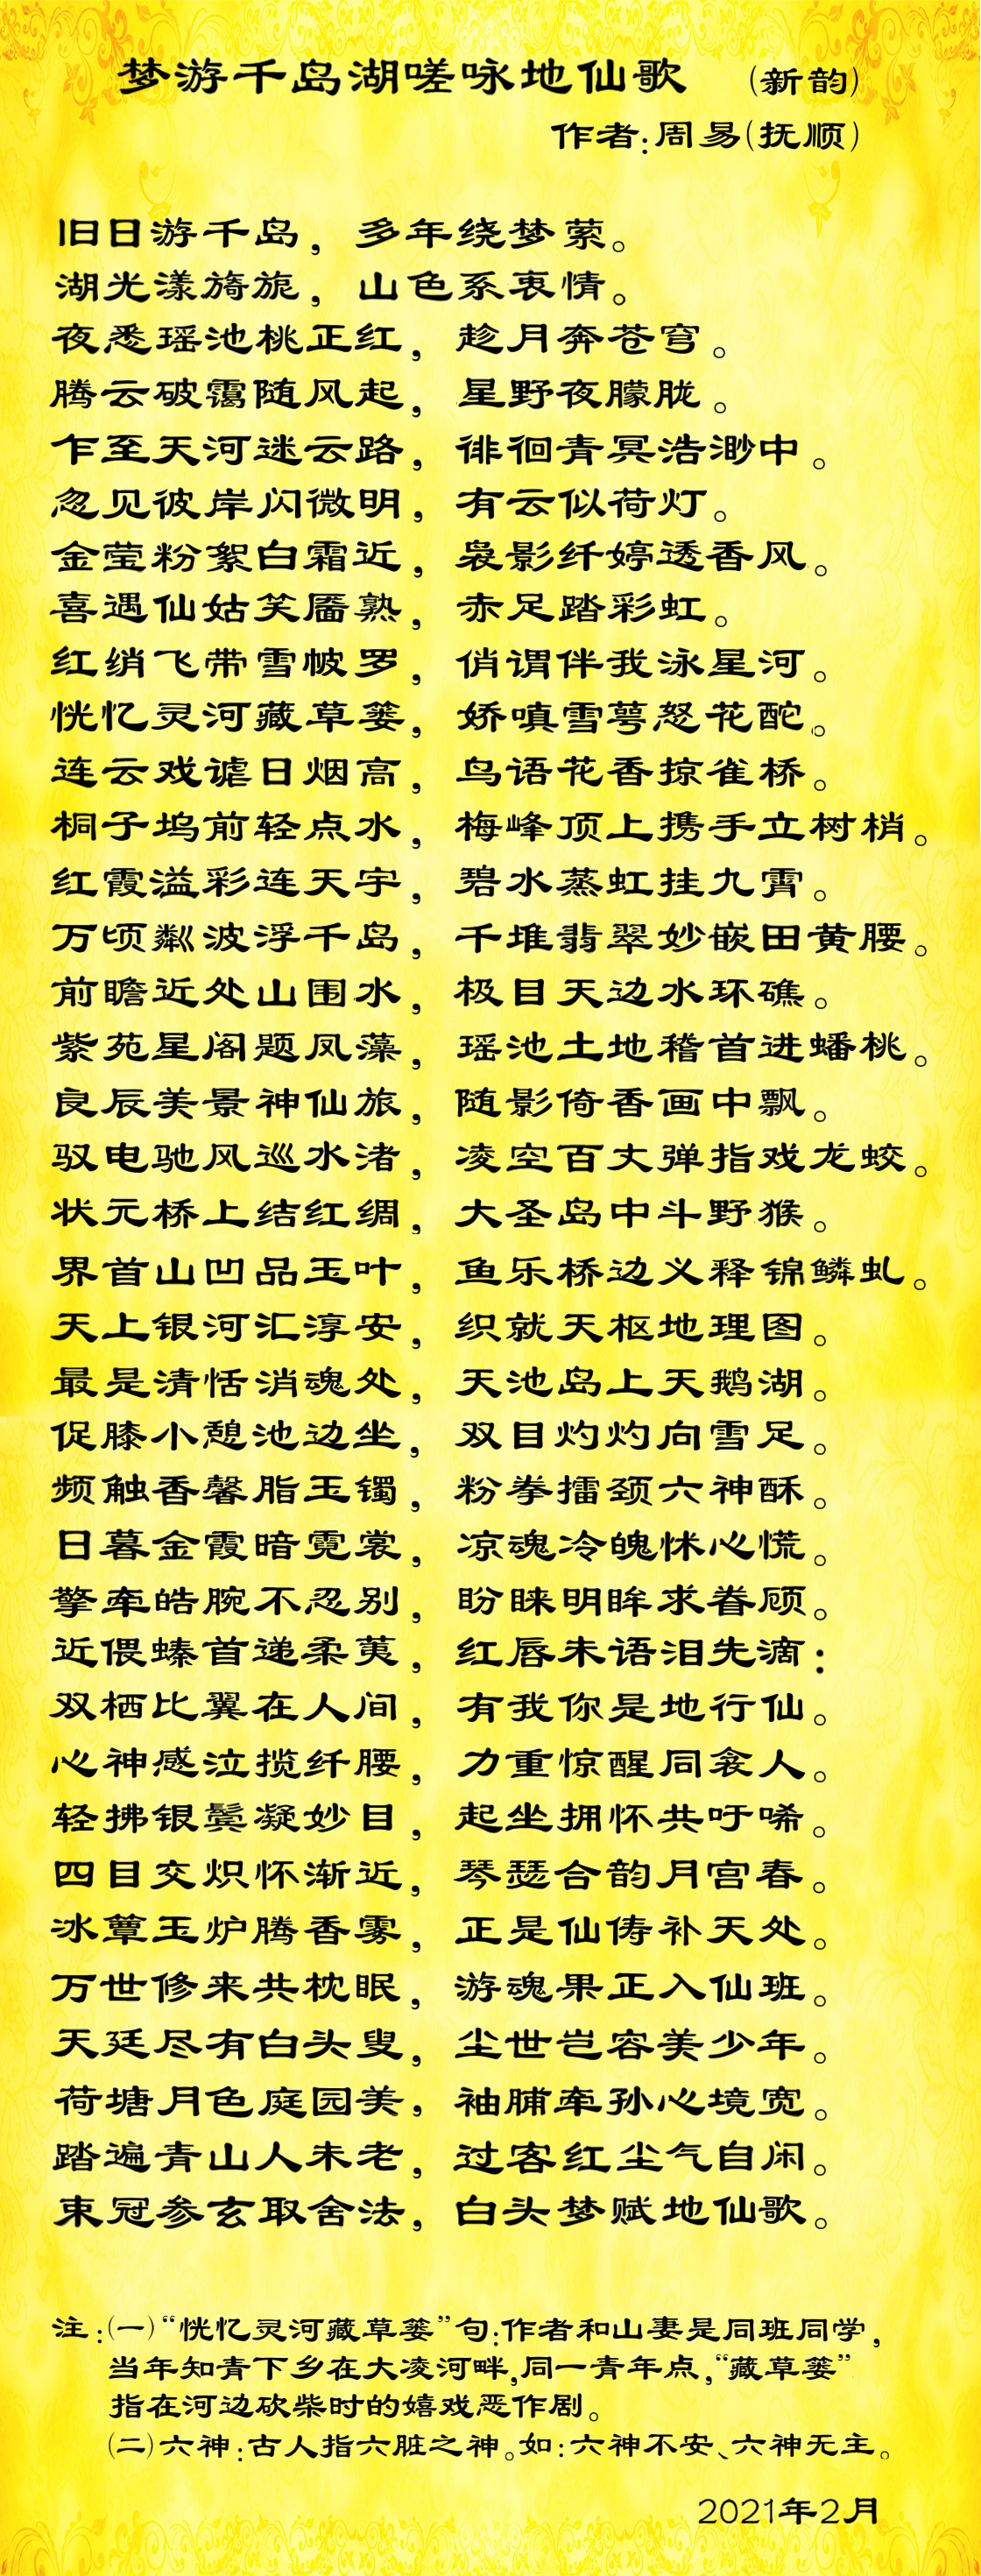 梦游千岛湖嗟咏地仙歌 (新韵)
作者:周易(抚顺)
旧日游千岛，多年绕梦萦。
湖光漾旖旎，山色系衷情。
夜悉瑶池桃正红，趁月奔苍穹。
腾云破霭随风起，星野夜朦胧。
乍至天河迷云路，徘徊青冥浩渺中。
忽见彼岸闪微明，有云似荷灯。
金莹粉絮白霜近，袅影纤婷透香风。
喜遇仙姑笑靥熟，赤足踏彩虹。
红绡飞带雪帔罗，俏谓伴我泳星河。
恍忆灵河藏草蒌，娇嗔雪萼怒花酡。
连云戏谑日烟高，鸟语花香掠雀桥。
桐子坞前轻点水，梅峰顶上携手立树梢。
红霞溢彩连天宇，碧水蒸虹挂九霄。
万顷粼波浮千岛，千堆翡翠妙嵌田黄腰。
前瞻近处山围水，极目天边水环礁。
紫苑星阁题凤藻，瑶池土地稽首进蟠桃。
良辰美景神仙旅，随影倚香画中飘。
驭电驰风巡水渚，凌空百丈弹指戏龙蛟。
状元桥上结红绸，大圣岛中斗野猴。
界首山凹品玉叶，鱼乐桥边义释锦鳞虬。
天上银河汇淳安，织就天枢地理图。
最是清恬消魂处，天池岛上天鹅湖。
促膝小憩池边坐，双目灼灼向雪足。
频触香馨脂玉镯，粉拳擂颈六神酥。
日暮金霞暗霓裳，凉魂冷魄怵心慌。
擎牵皓腕不忍别，盼睐明眸求眷顾。
近偎螓首递柔荑，红唇未语泪先滴：
双栖比翼在人间，有我你是地行仙。
心神感泣揽纤腰，力重惊醒同衾人。
轻拂银鬓凝妙目，起坐拥怀共吁唏。
四目交炽怀渐近，琴瑟合韵月宫春。
冰簟玉炉腾香雾，正是仙俦补天处。
万世修来共枕眠，游魂果正入仙班。
天廷尽有白头叟，尘世岂容美少年。
荷塘月色庭园美，袖脯牵孙心境宽。
踏遍青山人未老，过客红尘气自闲。
束冠参玄取舍法，白头梦赋地仙歌。
注:(一)“恍忆灵河藏草蒌”句:作者和山妻是同班同学，
当年知青下乡在大凌河畔，同一青年点，“藏草蒌”
指在河边砍柴时的嬉戏恶作剧。
(二)六神:古人指六脏之神。如:六神不安、六神无主。
2021年2月